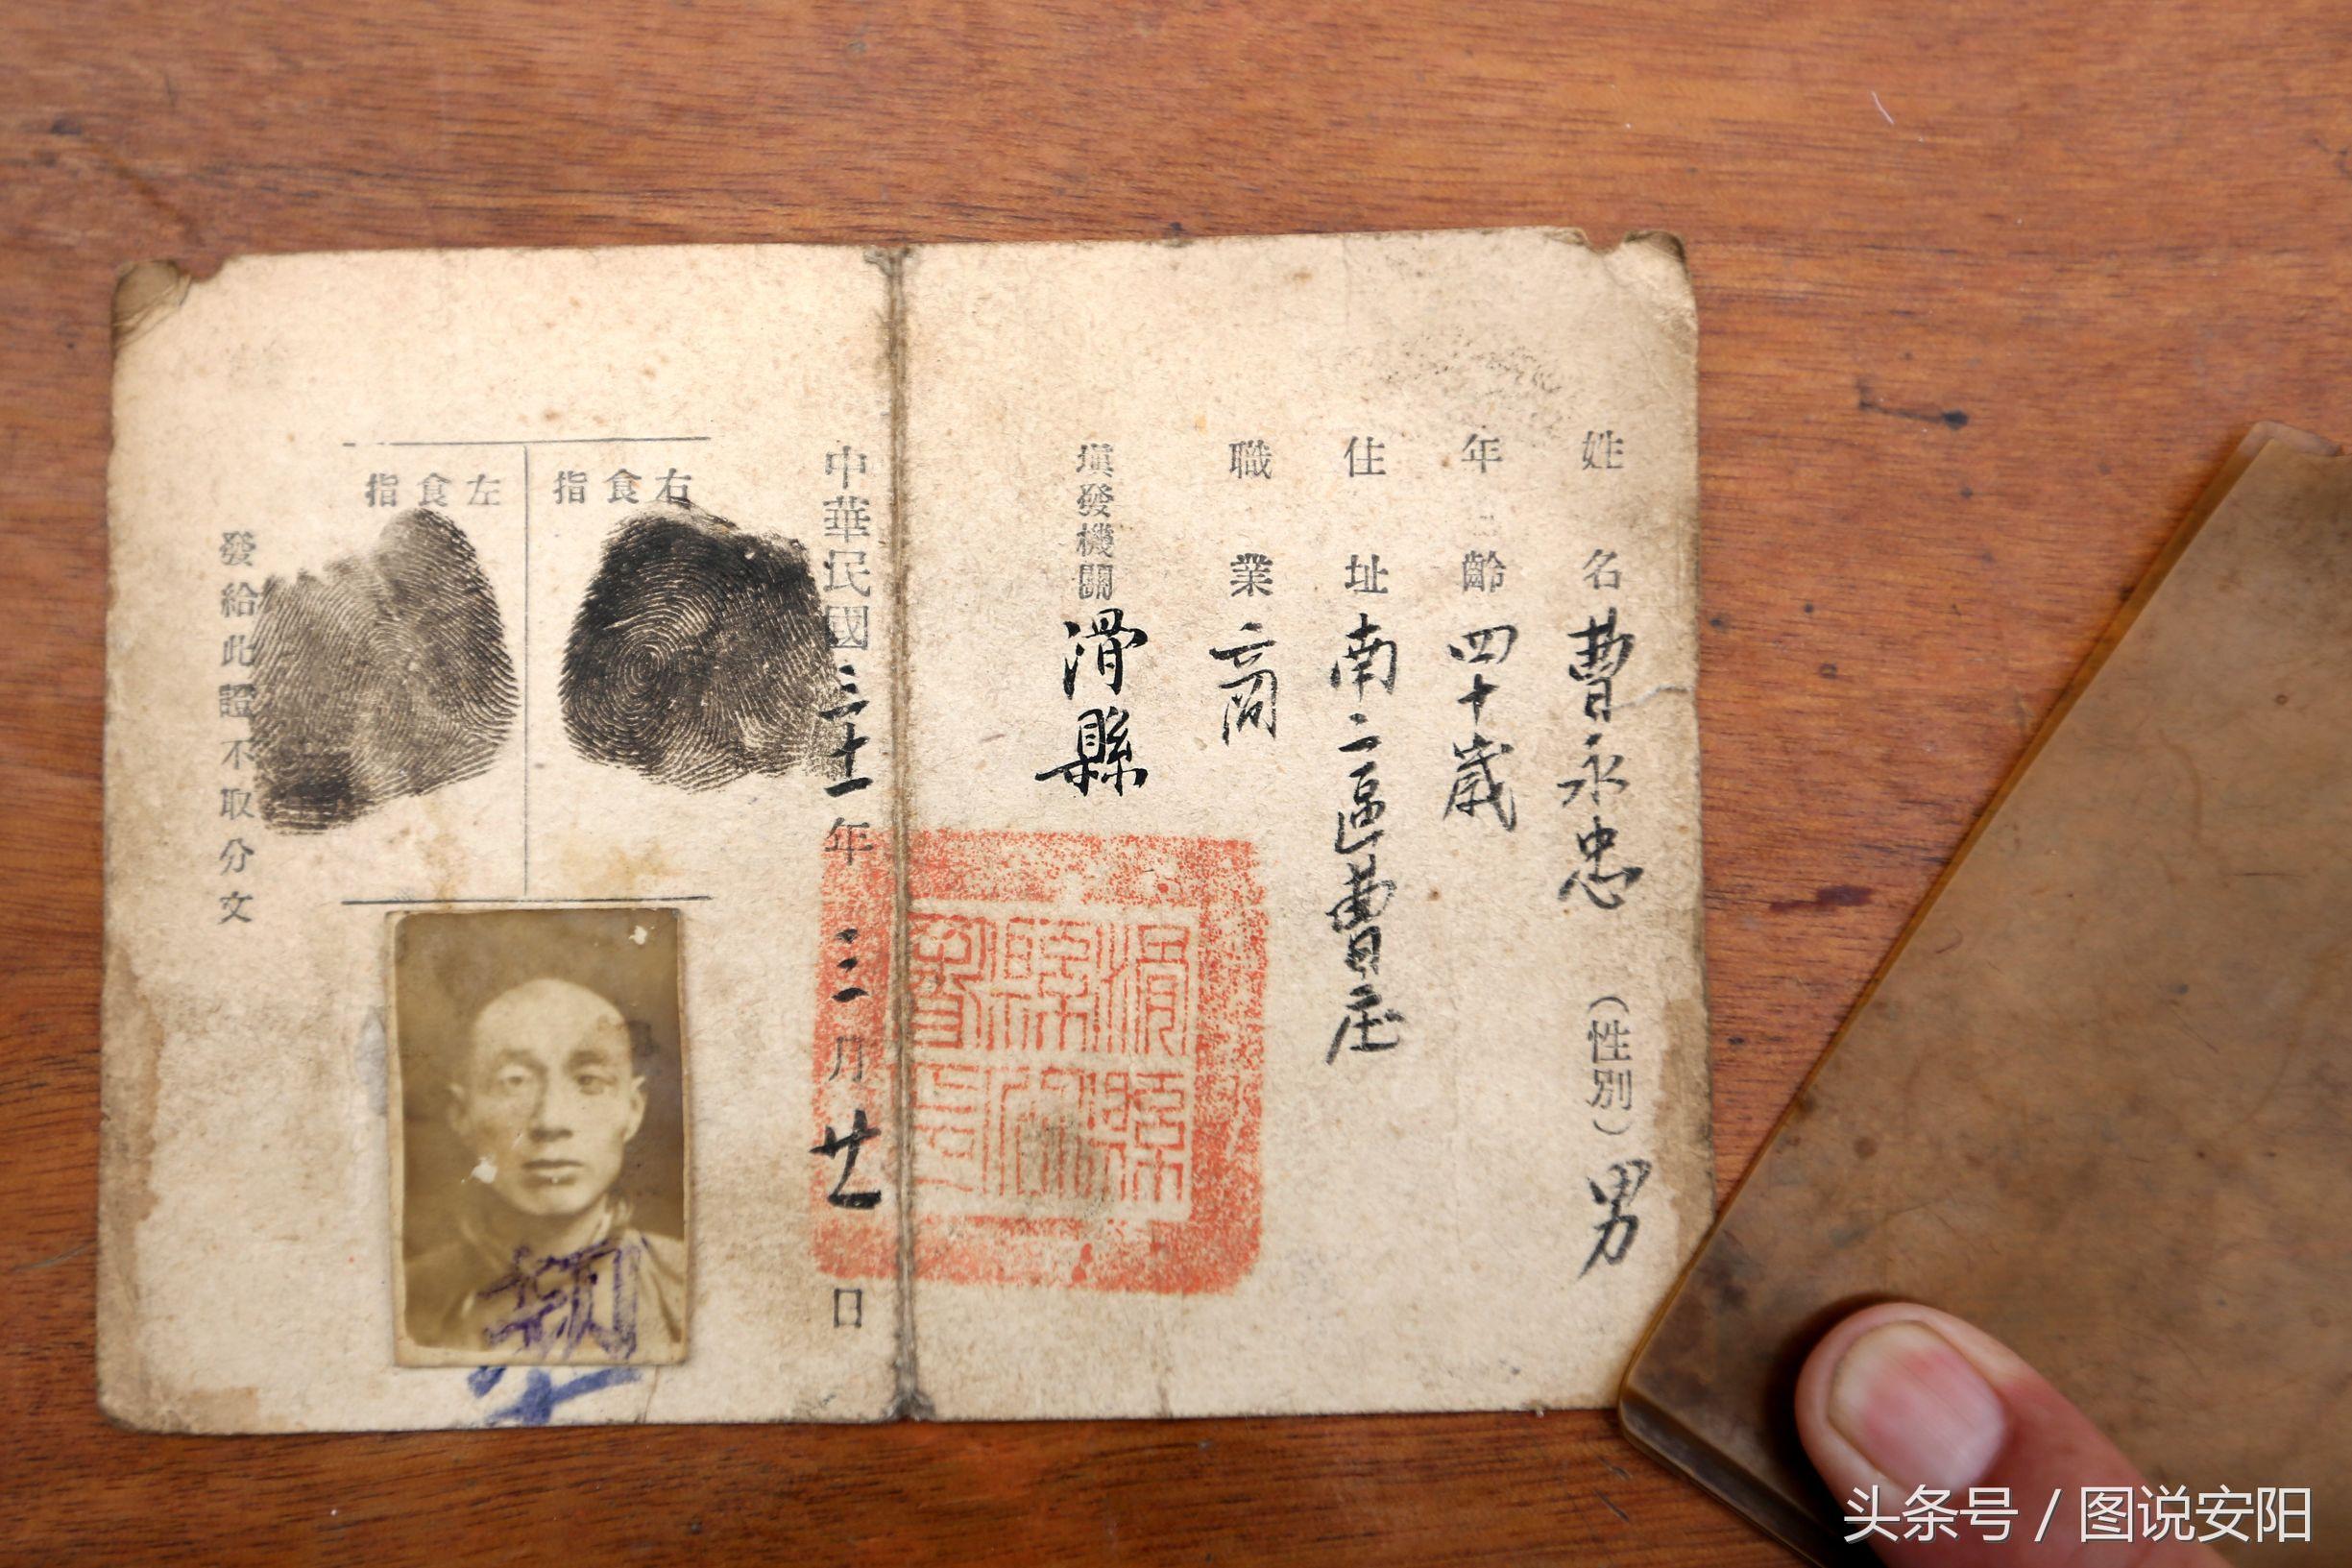 姓名 曹永忠 （性別）男
年齡 四十歲
住址 南二區曹庄
職業 商
填發機關 滑縣
中華民國三十一年三月廿一日
右食指
左食指
發給此證不取分文
头条号 / 图说安阳